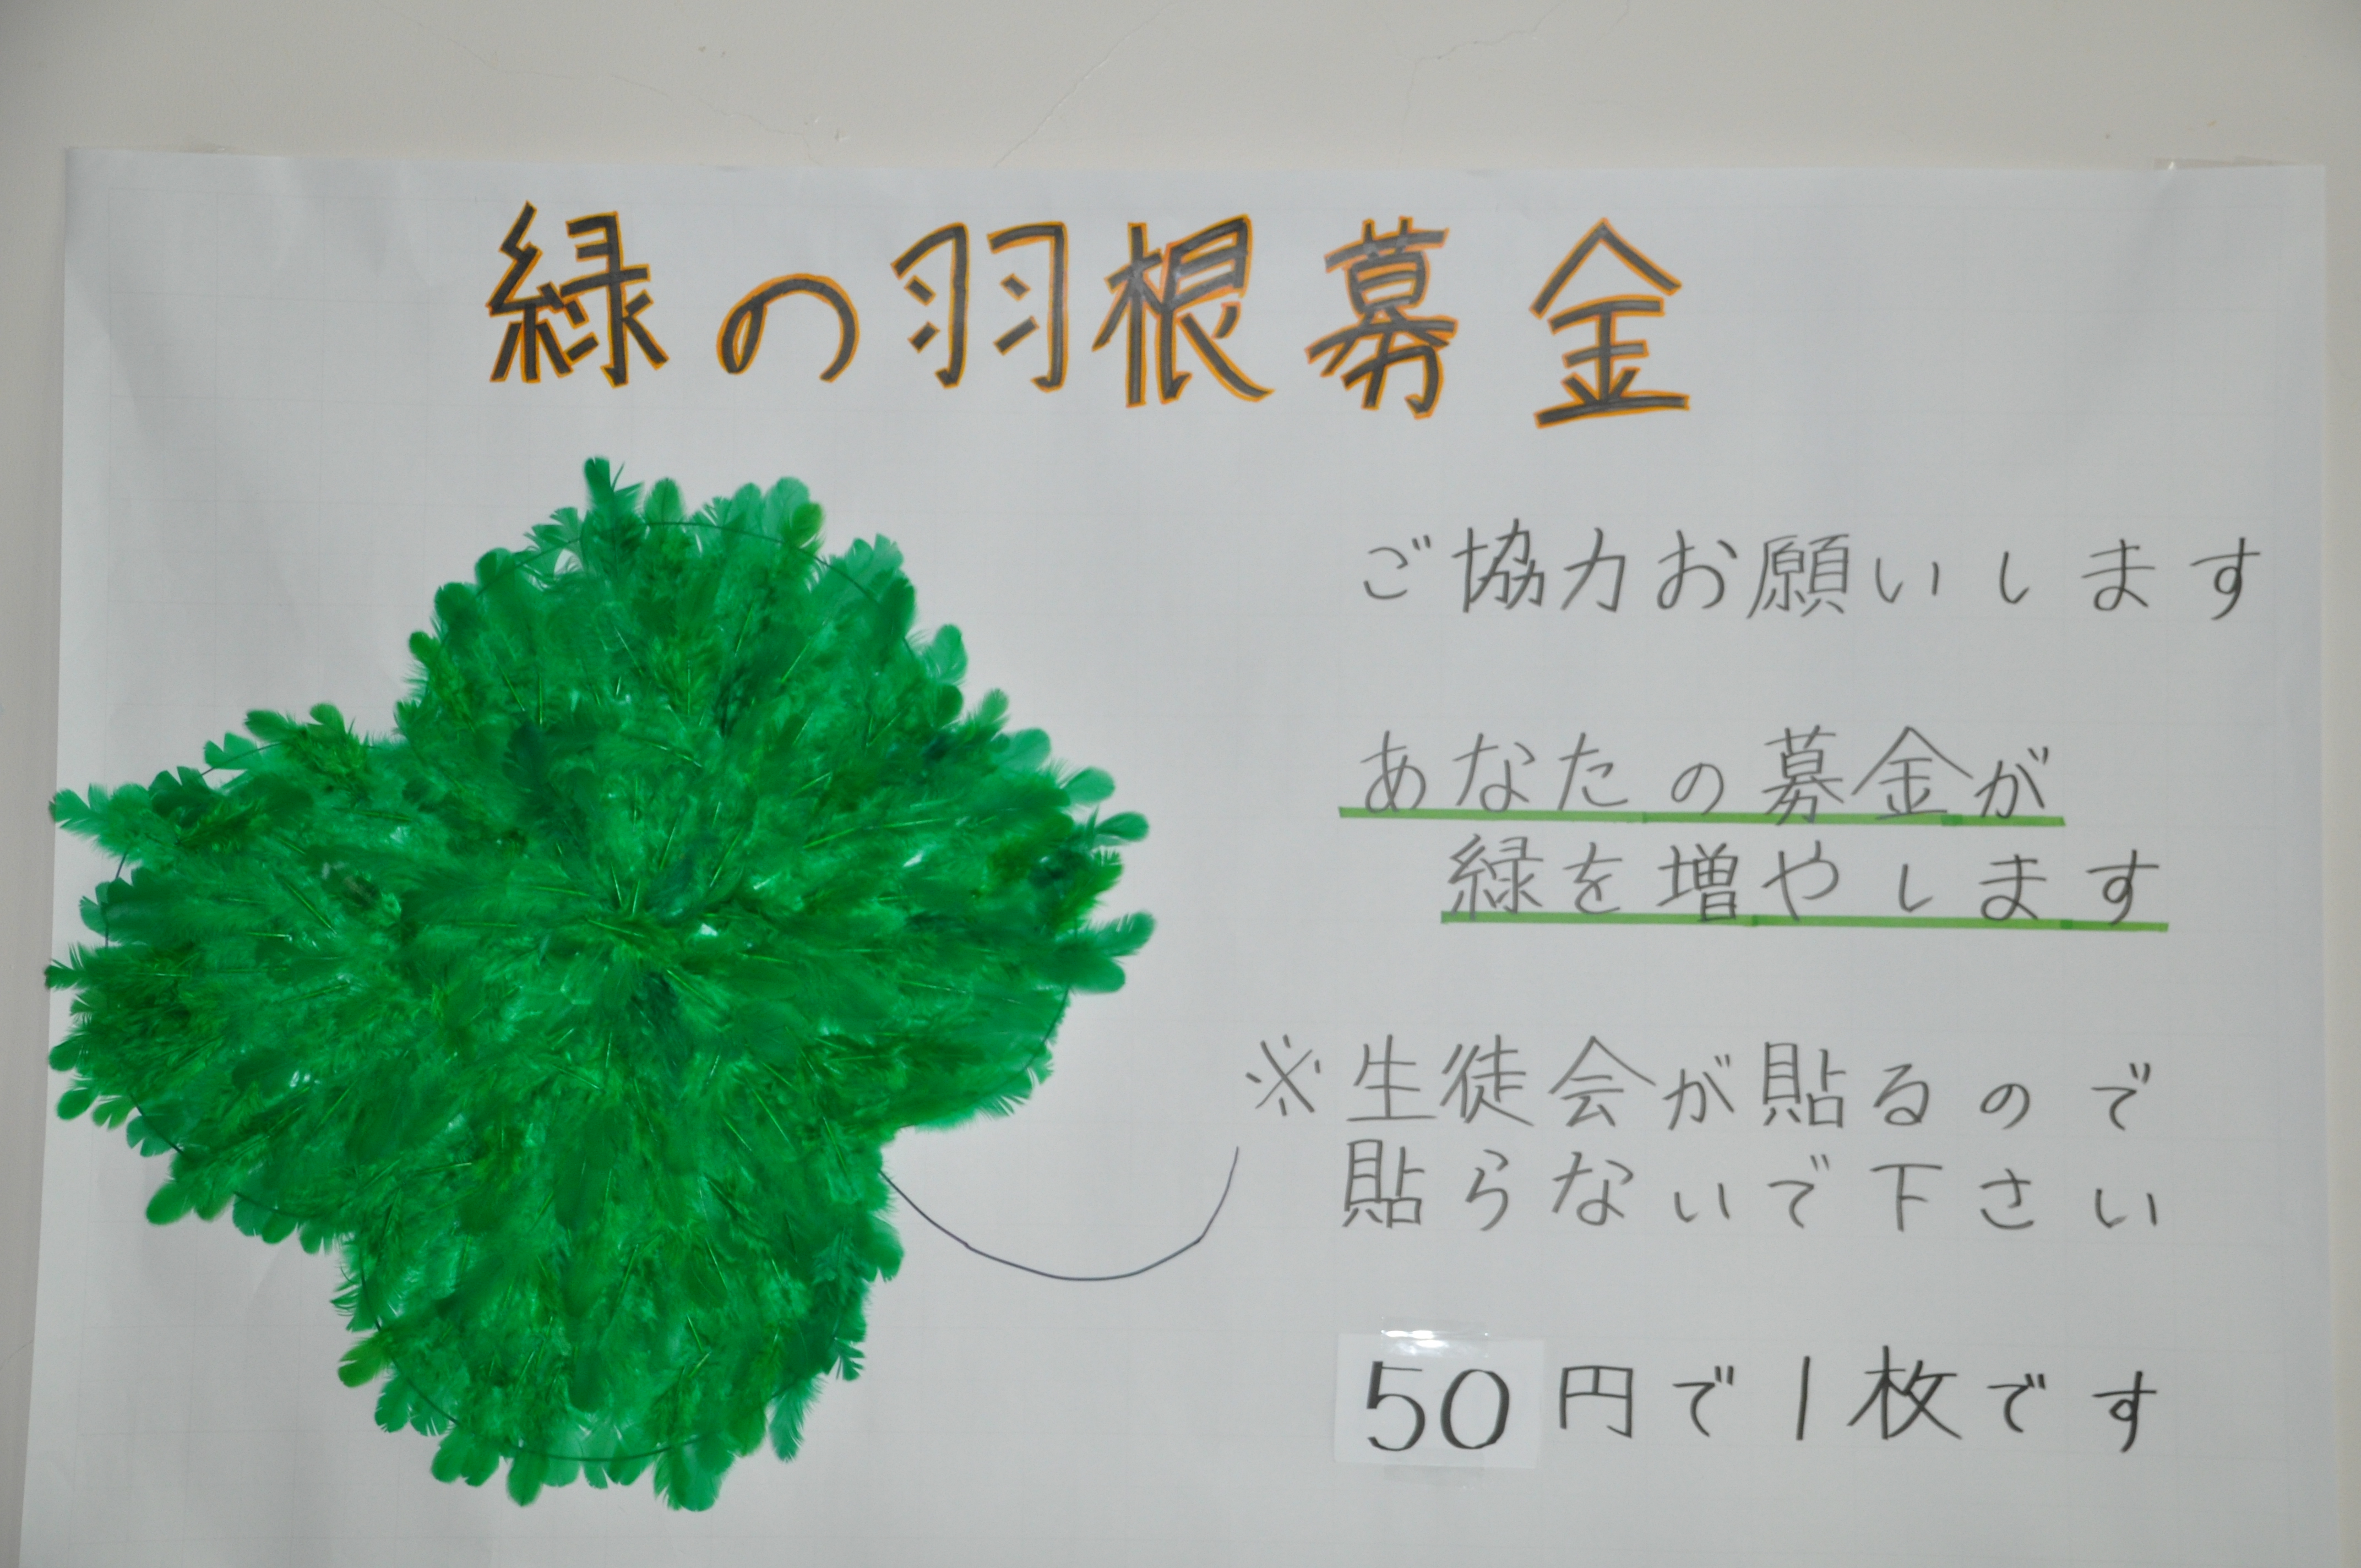 緑の羽根募金
ご協力お願いします
あなたの募金が
緑を増やします
※生徒会が貼るので
貼らないで下さい
50円で1枚です